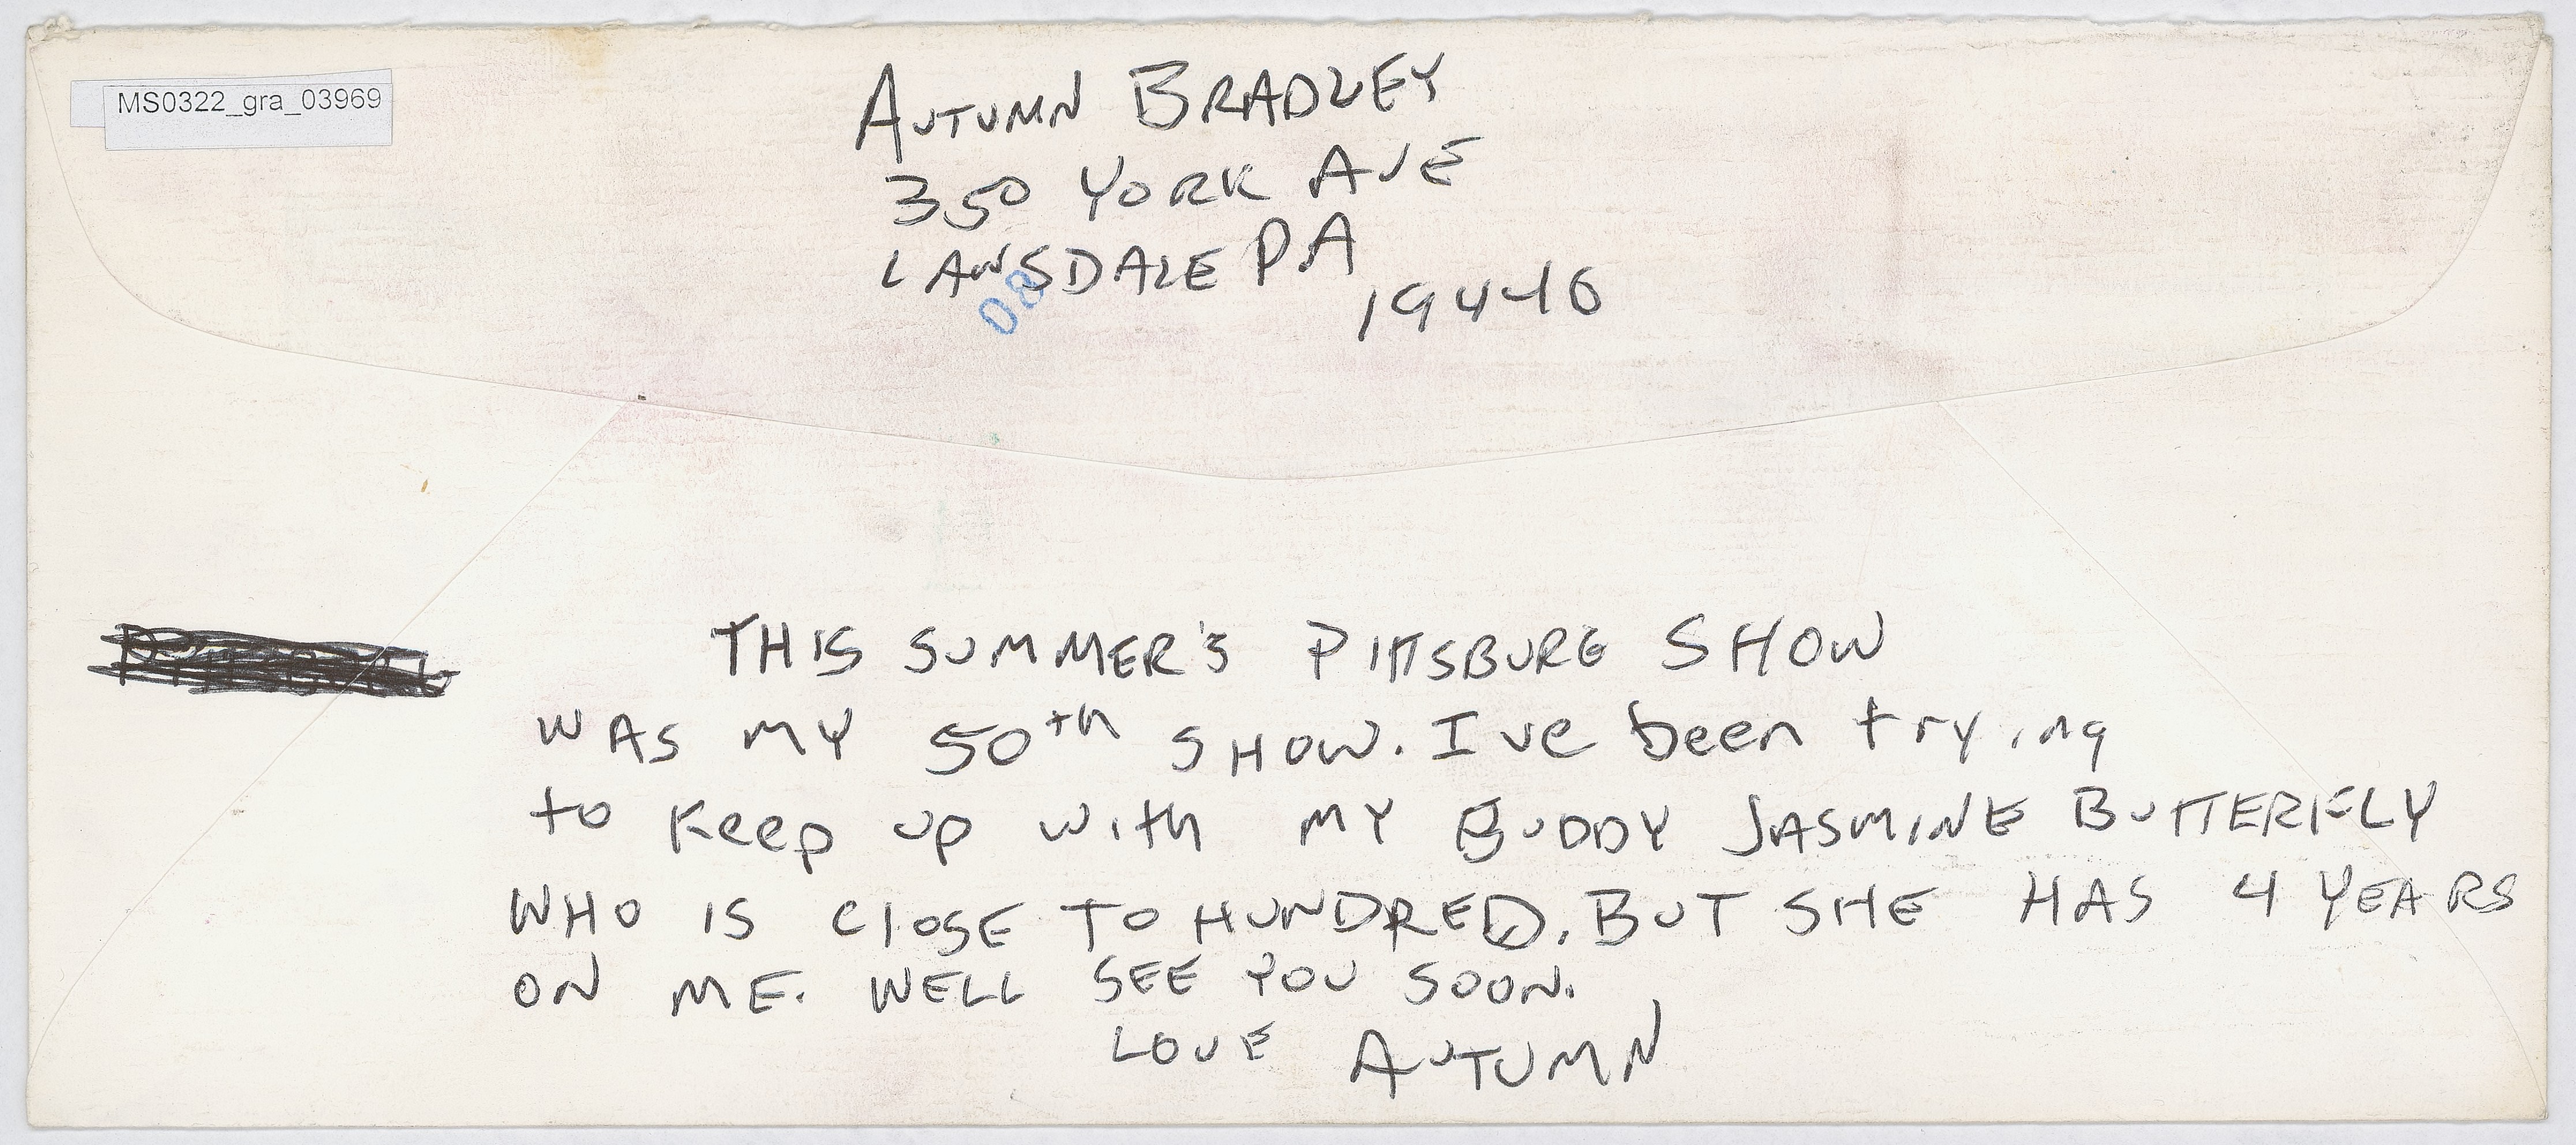 MS0322_gra_03969
AUTUMN BRADLEY
350 YORK AVE
LANSDALE PA
19446
08
THIS SUMMER'S PITTSBURG SHOW
WAS MY 50th SHOW. I've been trying
to keep up with MY BUDDY JASMINE BUTTERFLY
WHO IS CLOSE TO HUNDRED. BUT SHE HAS 4 YEARS
ON ME. WELL SEE YOU SOON.
LOVE AUTUMN